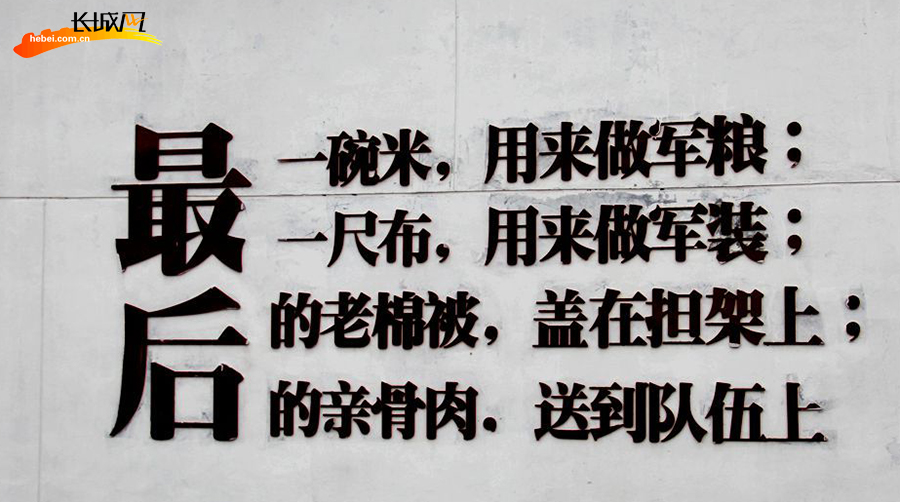 长城网
hebei.com.cn
最后
一碗米，用来做军粮；
一尺布，用来做军装；
的老棉被，盖在担架上；
的亲骨肉．送到队伍上